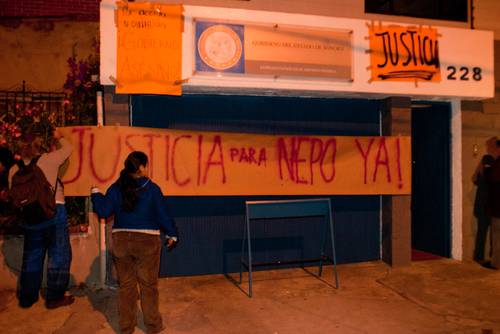 ASESINO
GOBIERNO DEL ESTADO DE SONORA
JUSTICIA
228
JUSTICIA PARA NEPO YA!